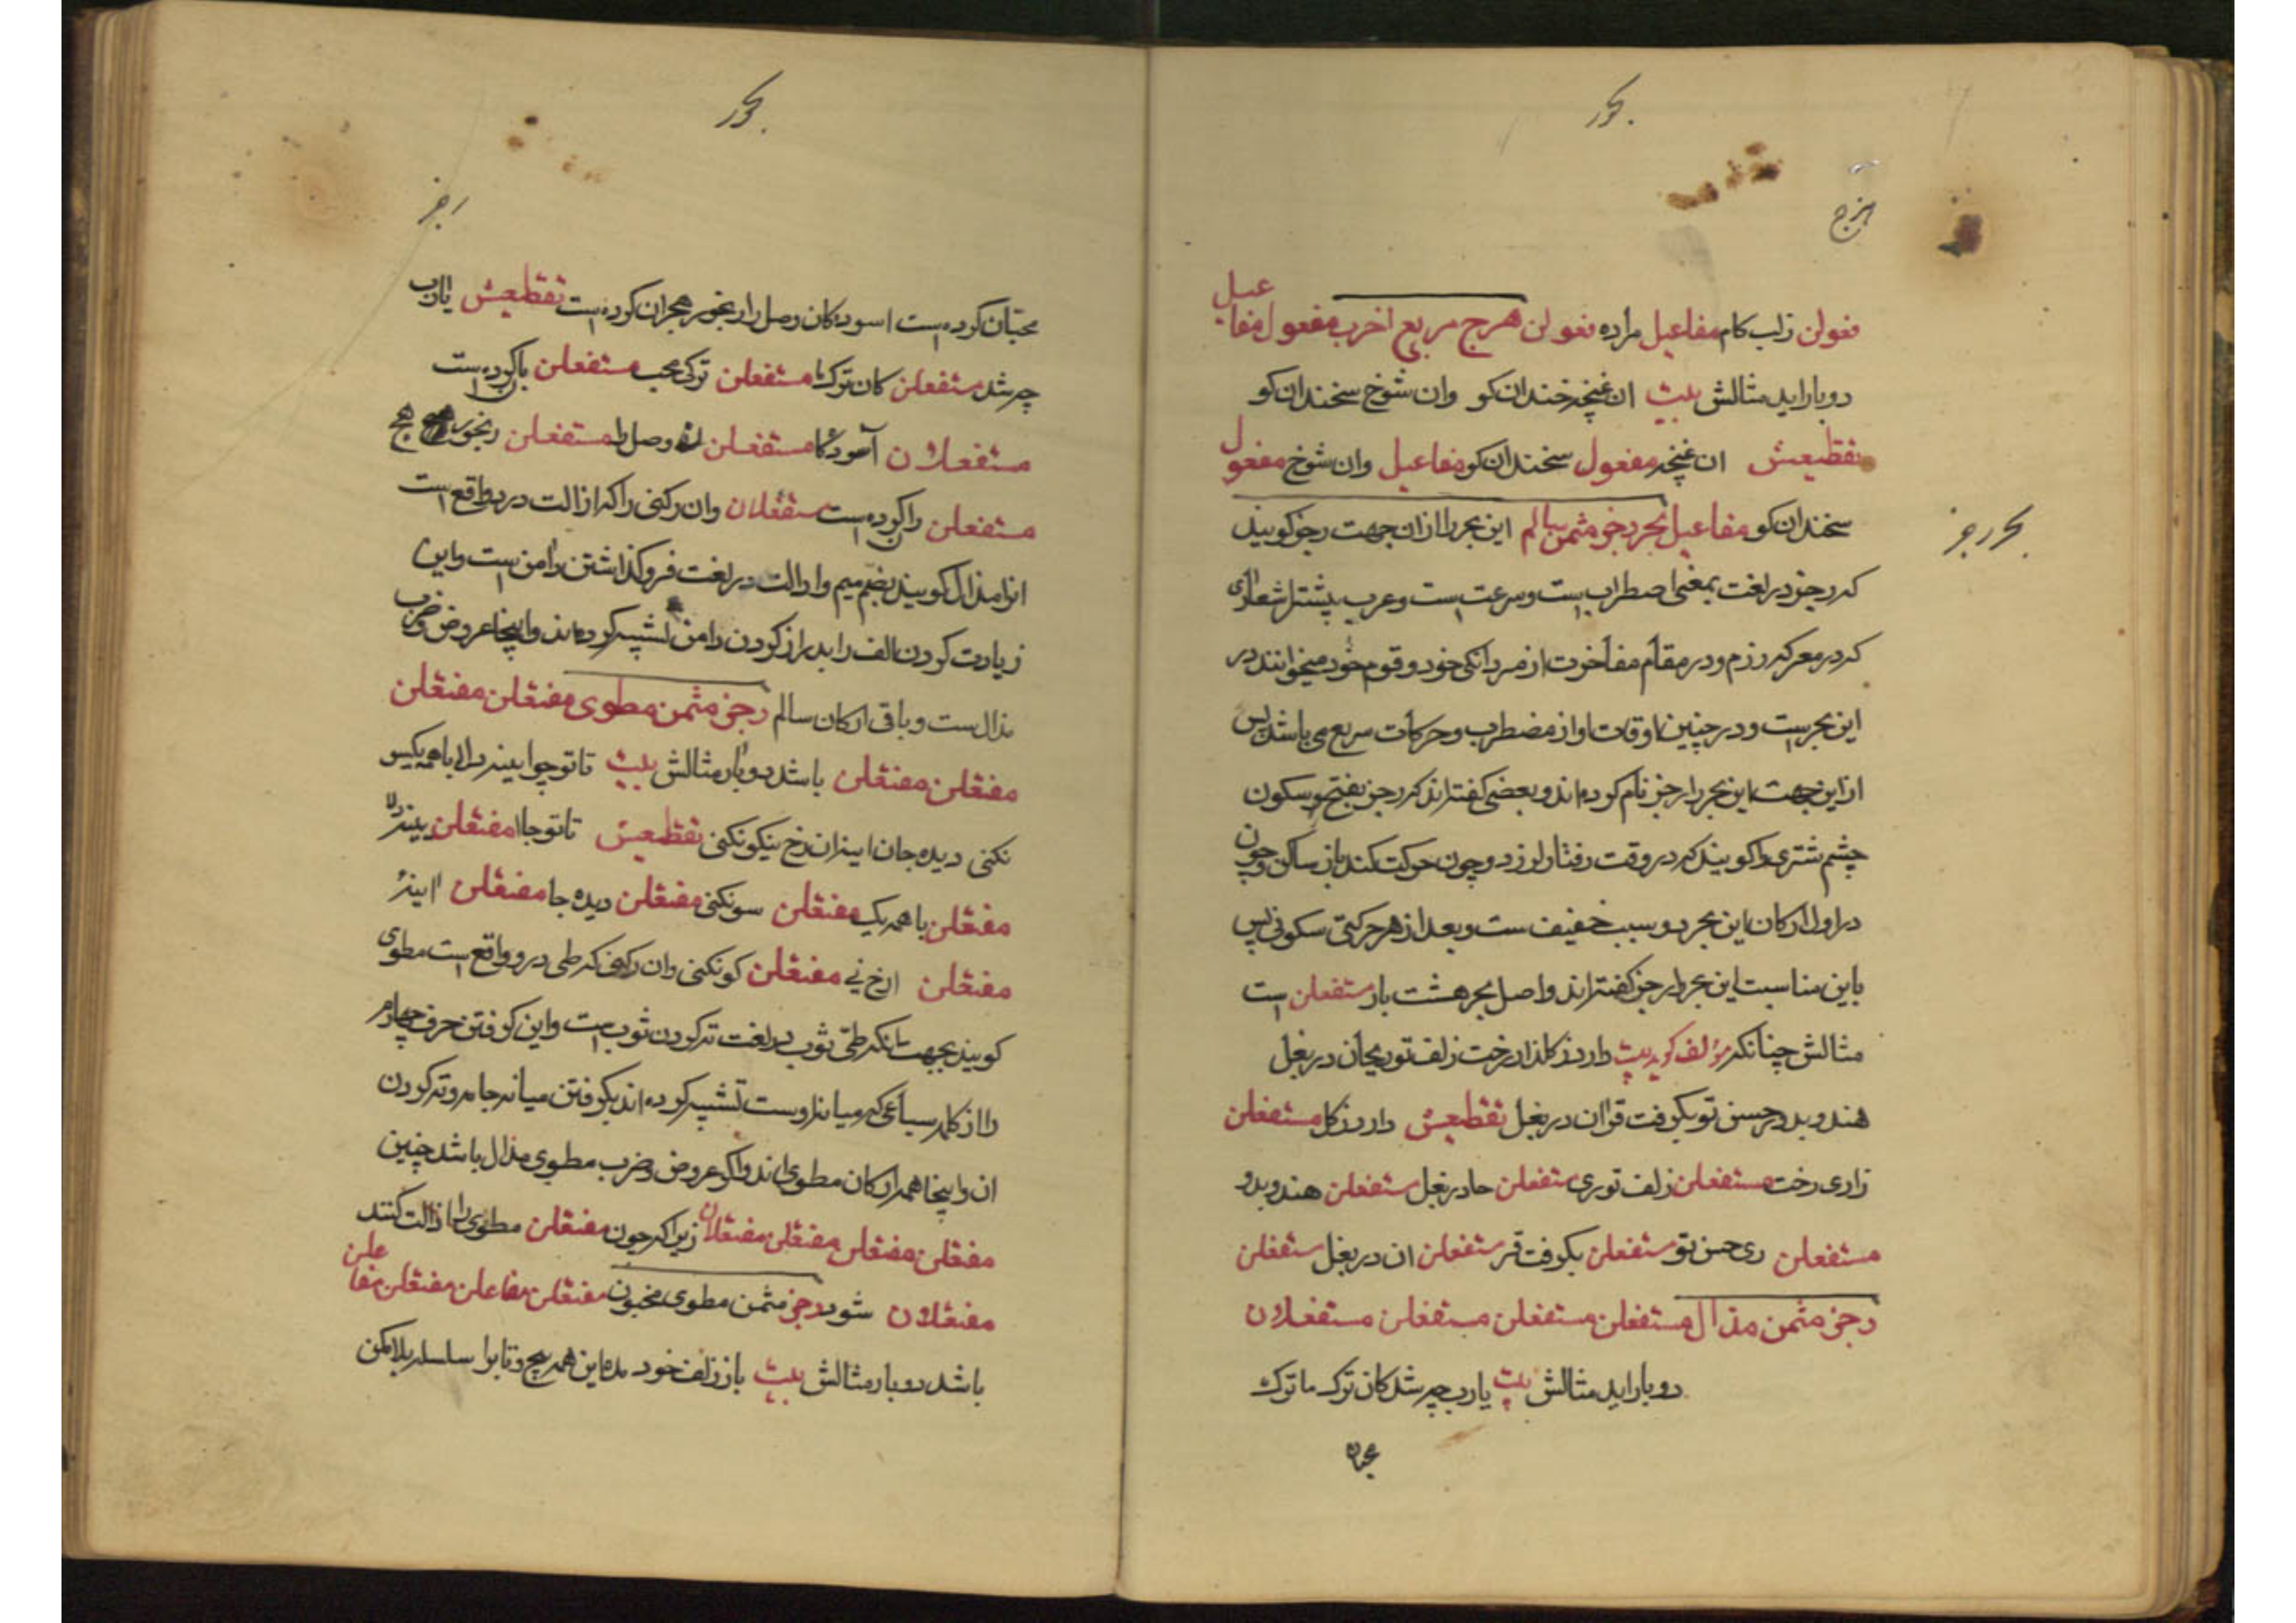 بحور
هزج
فعولن زلب کام مفاعیل مراده فعولن هزج مربع اخرب مفعول مفاعیل
دوبار اید مثالش بیت ان غنچه خندان کو وان شوخ سخندان کو
تقطیعش ان غنچه مفعول سخندان کو مفاعیل وان شوخ مفعول
سخندان کو مفاعیل بحر رجز مثمن سالم این بحر را ازان جهت رجز کویند
بحر رجز
که رجز در لغت بمعنی اضطراب است وسرعت است وعرب بیشتر اشعاری
که در معرکه رزم ودر مقام مفاخرت از مردانکی خود وقوم خود میخوانند در
این بحرست ودر چنین اوقات اواز مضطرب وحرکات سریع می باشد پس
از این جهت این بحر را رجز نام کرده اند وبعضی کفته اند که رجز بفتح وسکون
چشم شتری را کویند که در وقت رفتار لرزد وچون حرکت کند باز ساکن وچون
در اول ارکان این بحر دو سبب خفیف ست وبعد از هر حرکتی سکونی پس
باین مناسبت این بحر را رجز کفته اند واصل بحر هشت بار مستفعلن است
مثالش چنانکه مؤلف کوید بیت دارد ز کلذار رخت زلف تو ریحان در بغل
هندو بدور حسن تو بکرفت قران در بغل تقطیعش دارد ز کل مستفعلن
زاری رخت مستفعلن زلف توری مستفعلن حا در بغل مستفعلن هندو بدو
مستفعلن ری حسن تو مستفعلن بکرفت قر مستفعلن ان در بغل مستفعلن
رجز مثمن مذال مستفعلن مستفعلن مستفعلن مستفعلان
دوبار اید مثالش بیت یارب چه شد کان ترک ما ترک
محبان
بحور
رجز
محبتان کرده است اسوده کان وصل را رنجور هجران کرده است تقطیعش یارب
چه شد مستفعلن کان ترک ما مستفعلن ترک محب مستفعلن با کرده است
مستفعلان آسوده کا مستفعلن ن وصل را مستفعلن رنجور هج
مستفعلن را کرده است مستفعلان وان رکنی را که ازالت درو واقع است
انرا مذال کویند بضم میم واذالت در لغت فروکذاشتن دامن ست واین
زیادت کردن الف را بدراز کردن دامن تشبیه کرده اند واینجا عروض وضرب
مذال ست وباقی ارکان سالم رجز مثمن مطوی مفتعلن مفتعلن
مفتعلن مفتعلن باشد دوبار مثالش بیت تا تو چو ایینه دلا با همه یکسو
نکنی دیده جان اینه ان رخ نیکو نکنی تقطیعش تا تو چا مفتعلن یینه دلا
مفتعلن با همه یک مفتعلن سو نکنی مفتعلن دیده جا مفتعلن اینه
مفتعلن ارخ نی مفتعلن کو نکنی وان رکنی که طی درو واقع است مطوی
کویند بجهت انکه طی ثوب در لغت ته کردن ثوب است واین کرفتن حرف چهارم
را از کلمه سباعی که میانه اوست تشبیه کرده اند بکرفتن میانه جامه وته کردن
ان واینجا همه ارکان مطوی اند واکر عروض وضرب مطوی مذال باشد چنین
مفتعلن مفتعلن مفتعلن مفتعلان زیرا که چون مفتعلن مطوی را اذالت کنند
مفتعلان شود رجز مثمن مطوی مخبون مفتعلن مفاعلن مفتعلن مفاعلن
باشد دوبار مثالش بیت باز زلف خود مده این همه پیچ وتاب را سلسله بلا مکن